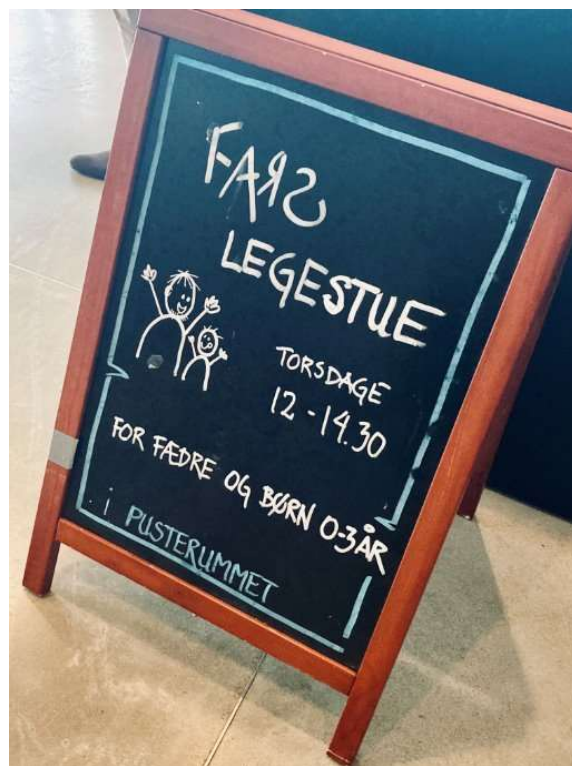 FARS
LEGESTUE
TORSDAGE
12-14.30
FOR FÆDRE OG BØRN 0-3 ÅR
i PUSTERUMMET